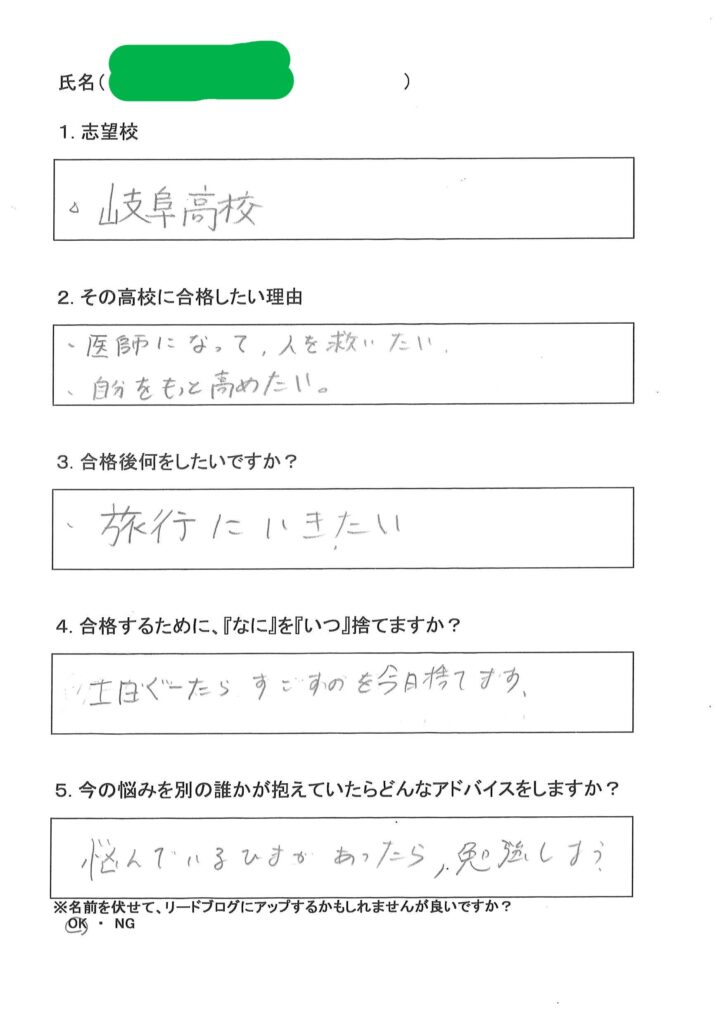 氏名(                    )
1. 志望校
岐阜高校
2. その高校に合格したい理由
・医師になって、人を救いたい。
・自分をもっと高めたい。
3. 合格後何をしたいですか？
・旅行にいきたい
4. 合格するために、『なに』を『いつ』捨てますか？
土日ぐーたらすごすのを今日捨てます。
5. 今の悩みを別の誰かが抱えていたらどんなアドバイスをしますか？
悩んでいるひまがあったら、勉強しよう
※名前を伏せて、リードブログにアップするかもしれませんが良いですか？
OK ・ NG